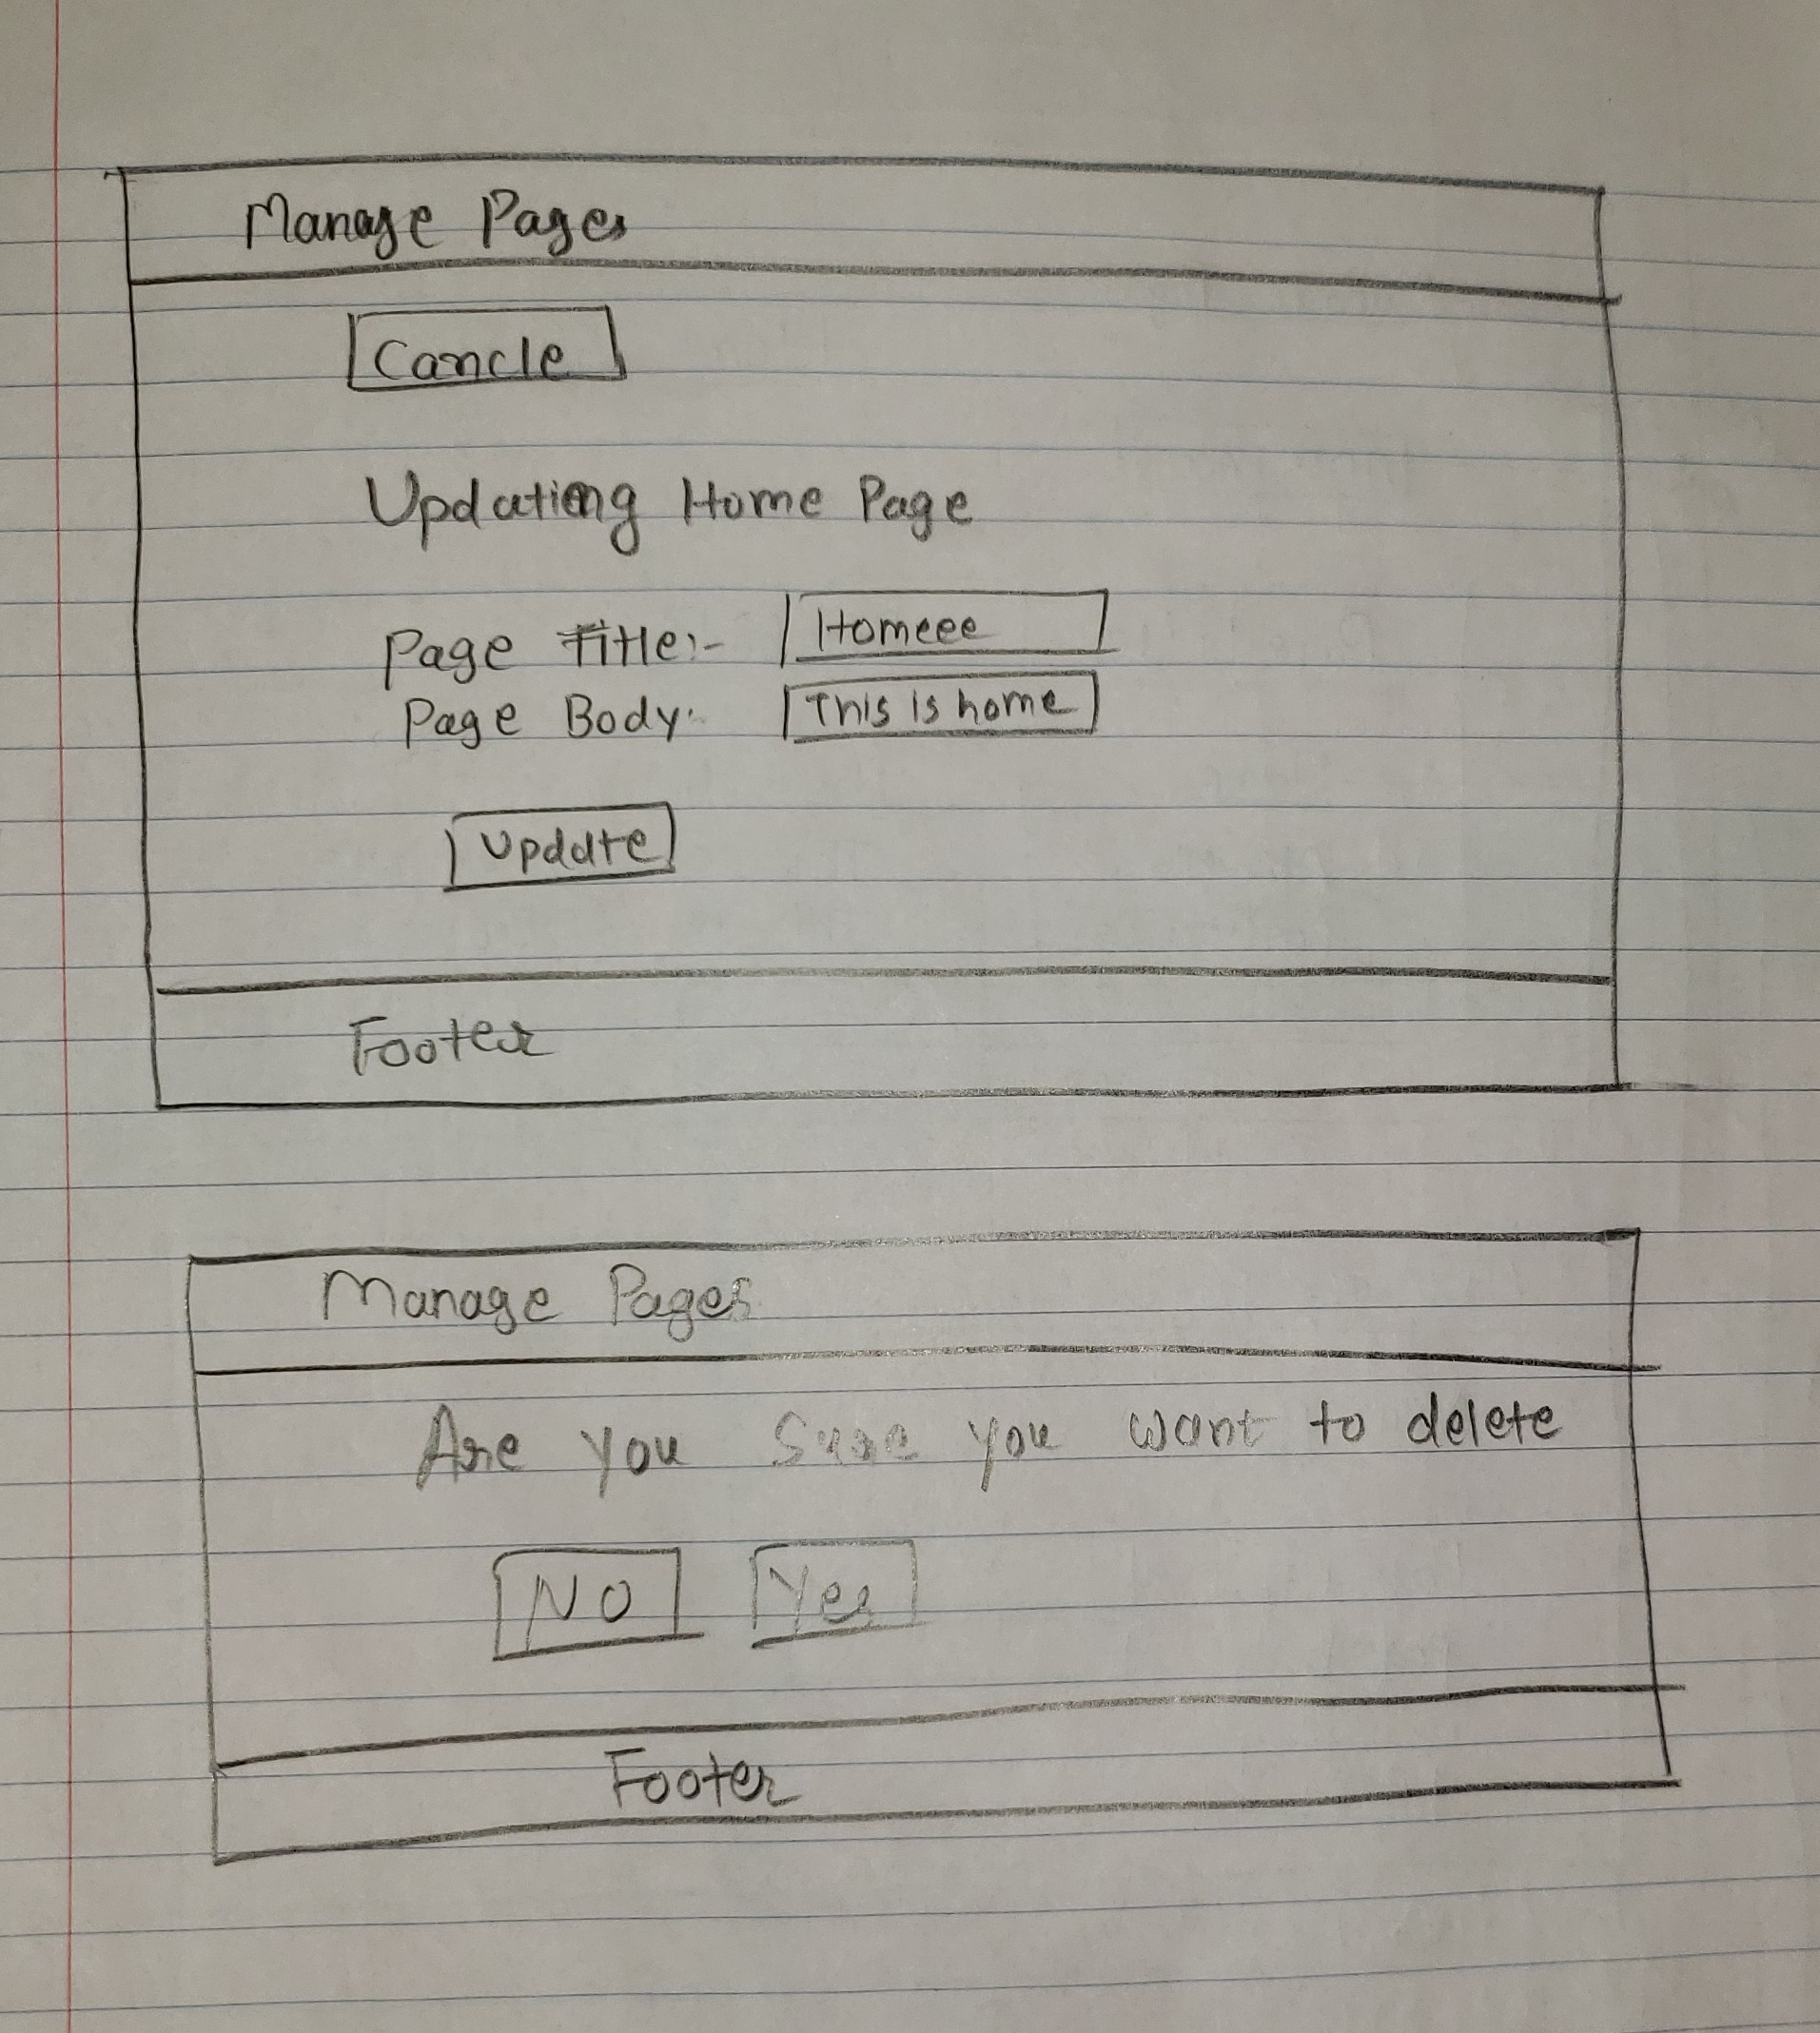 Manage Pages
Cancle
Updating Home Page
Page Title:- Homeee
Page Body: This is home
Update
Footer
Manage Pages
Are you Sure you want to delete
No Yes
Footer